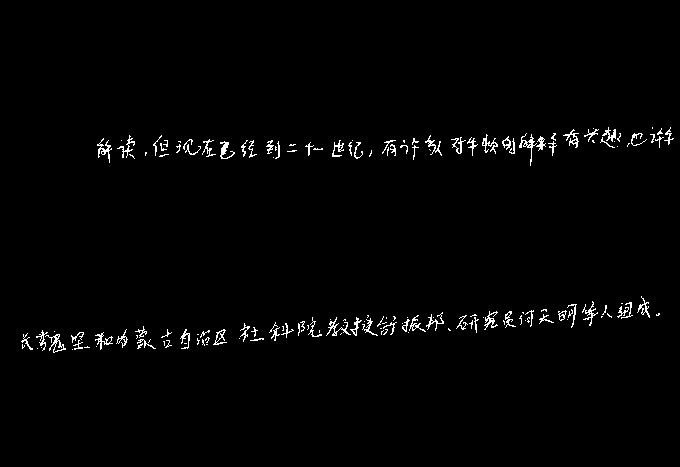 解读，但现在已经到二十世纪，有许多对牛顿的解释有兴趣也许
长魏坚和内蒙古自治区社科院教授舒振邦、研究员何天明等人组成。